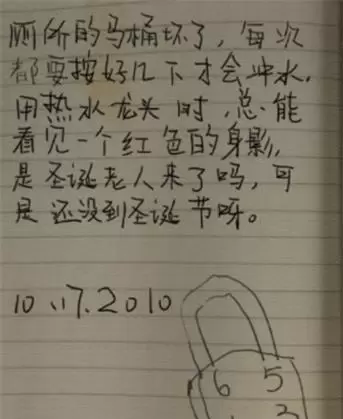 厕所的马桶坏了，每次
都要按好几下才会冲水，
用热水龙头时，总能
看见一个红色的身影，
是圣诞老人来了吗，可
是还没到圣诞节呀。
10.17.2010
6 5
3